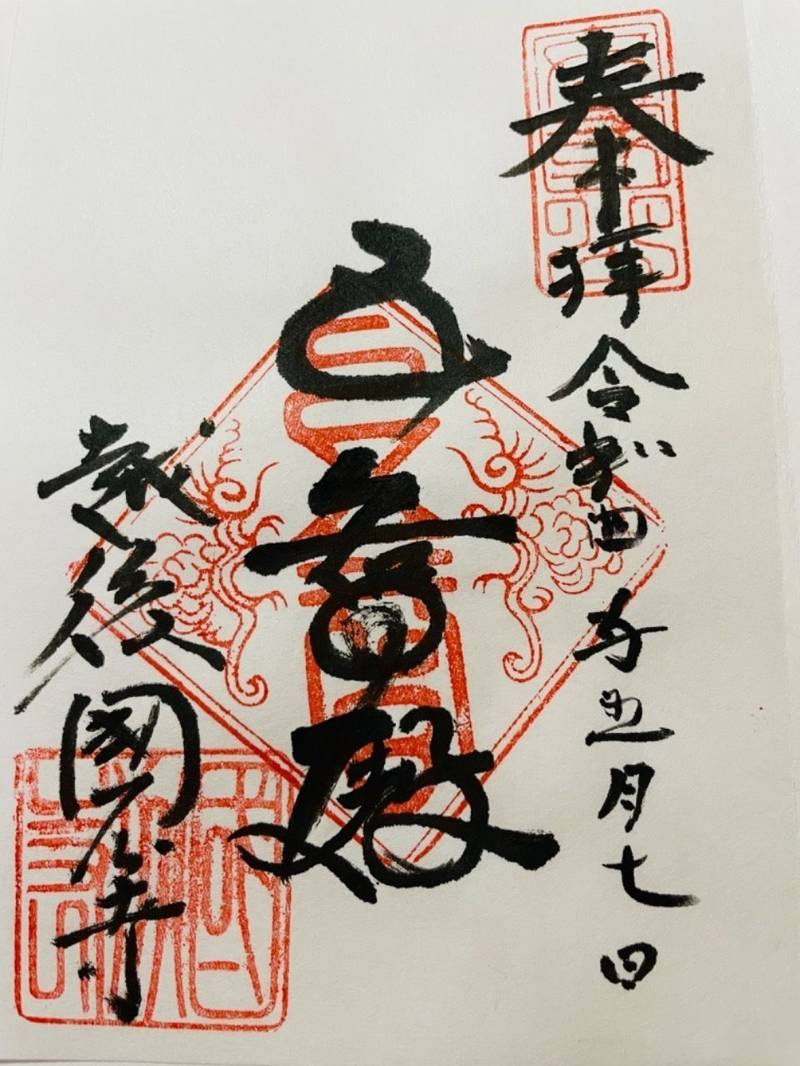 奉拝 令和四年五月七日
五智殿
越後國分寺